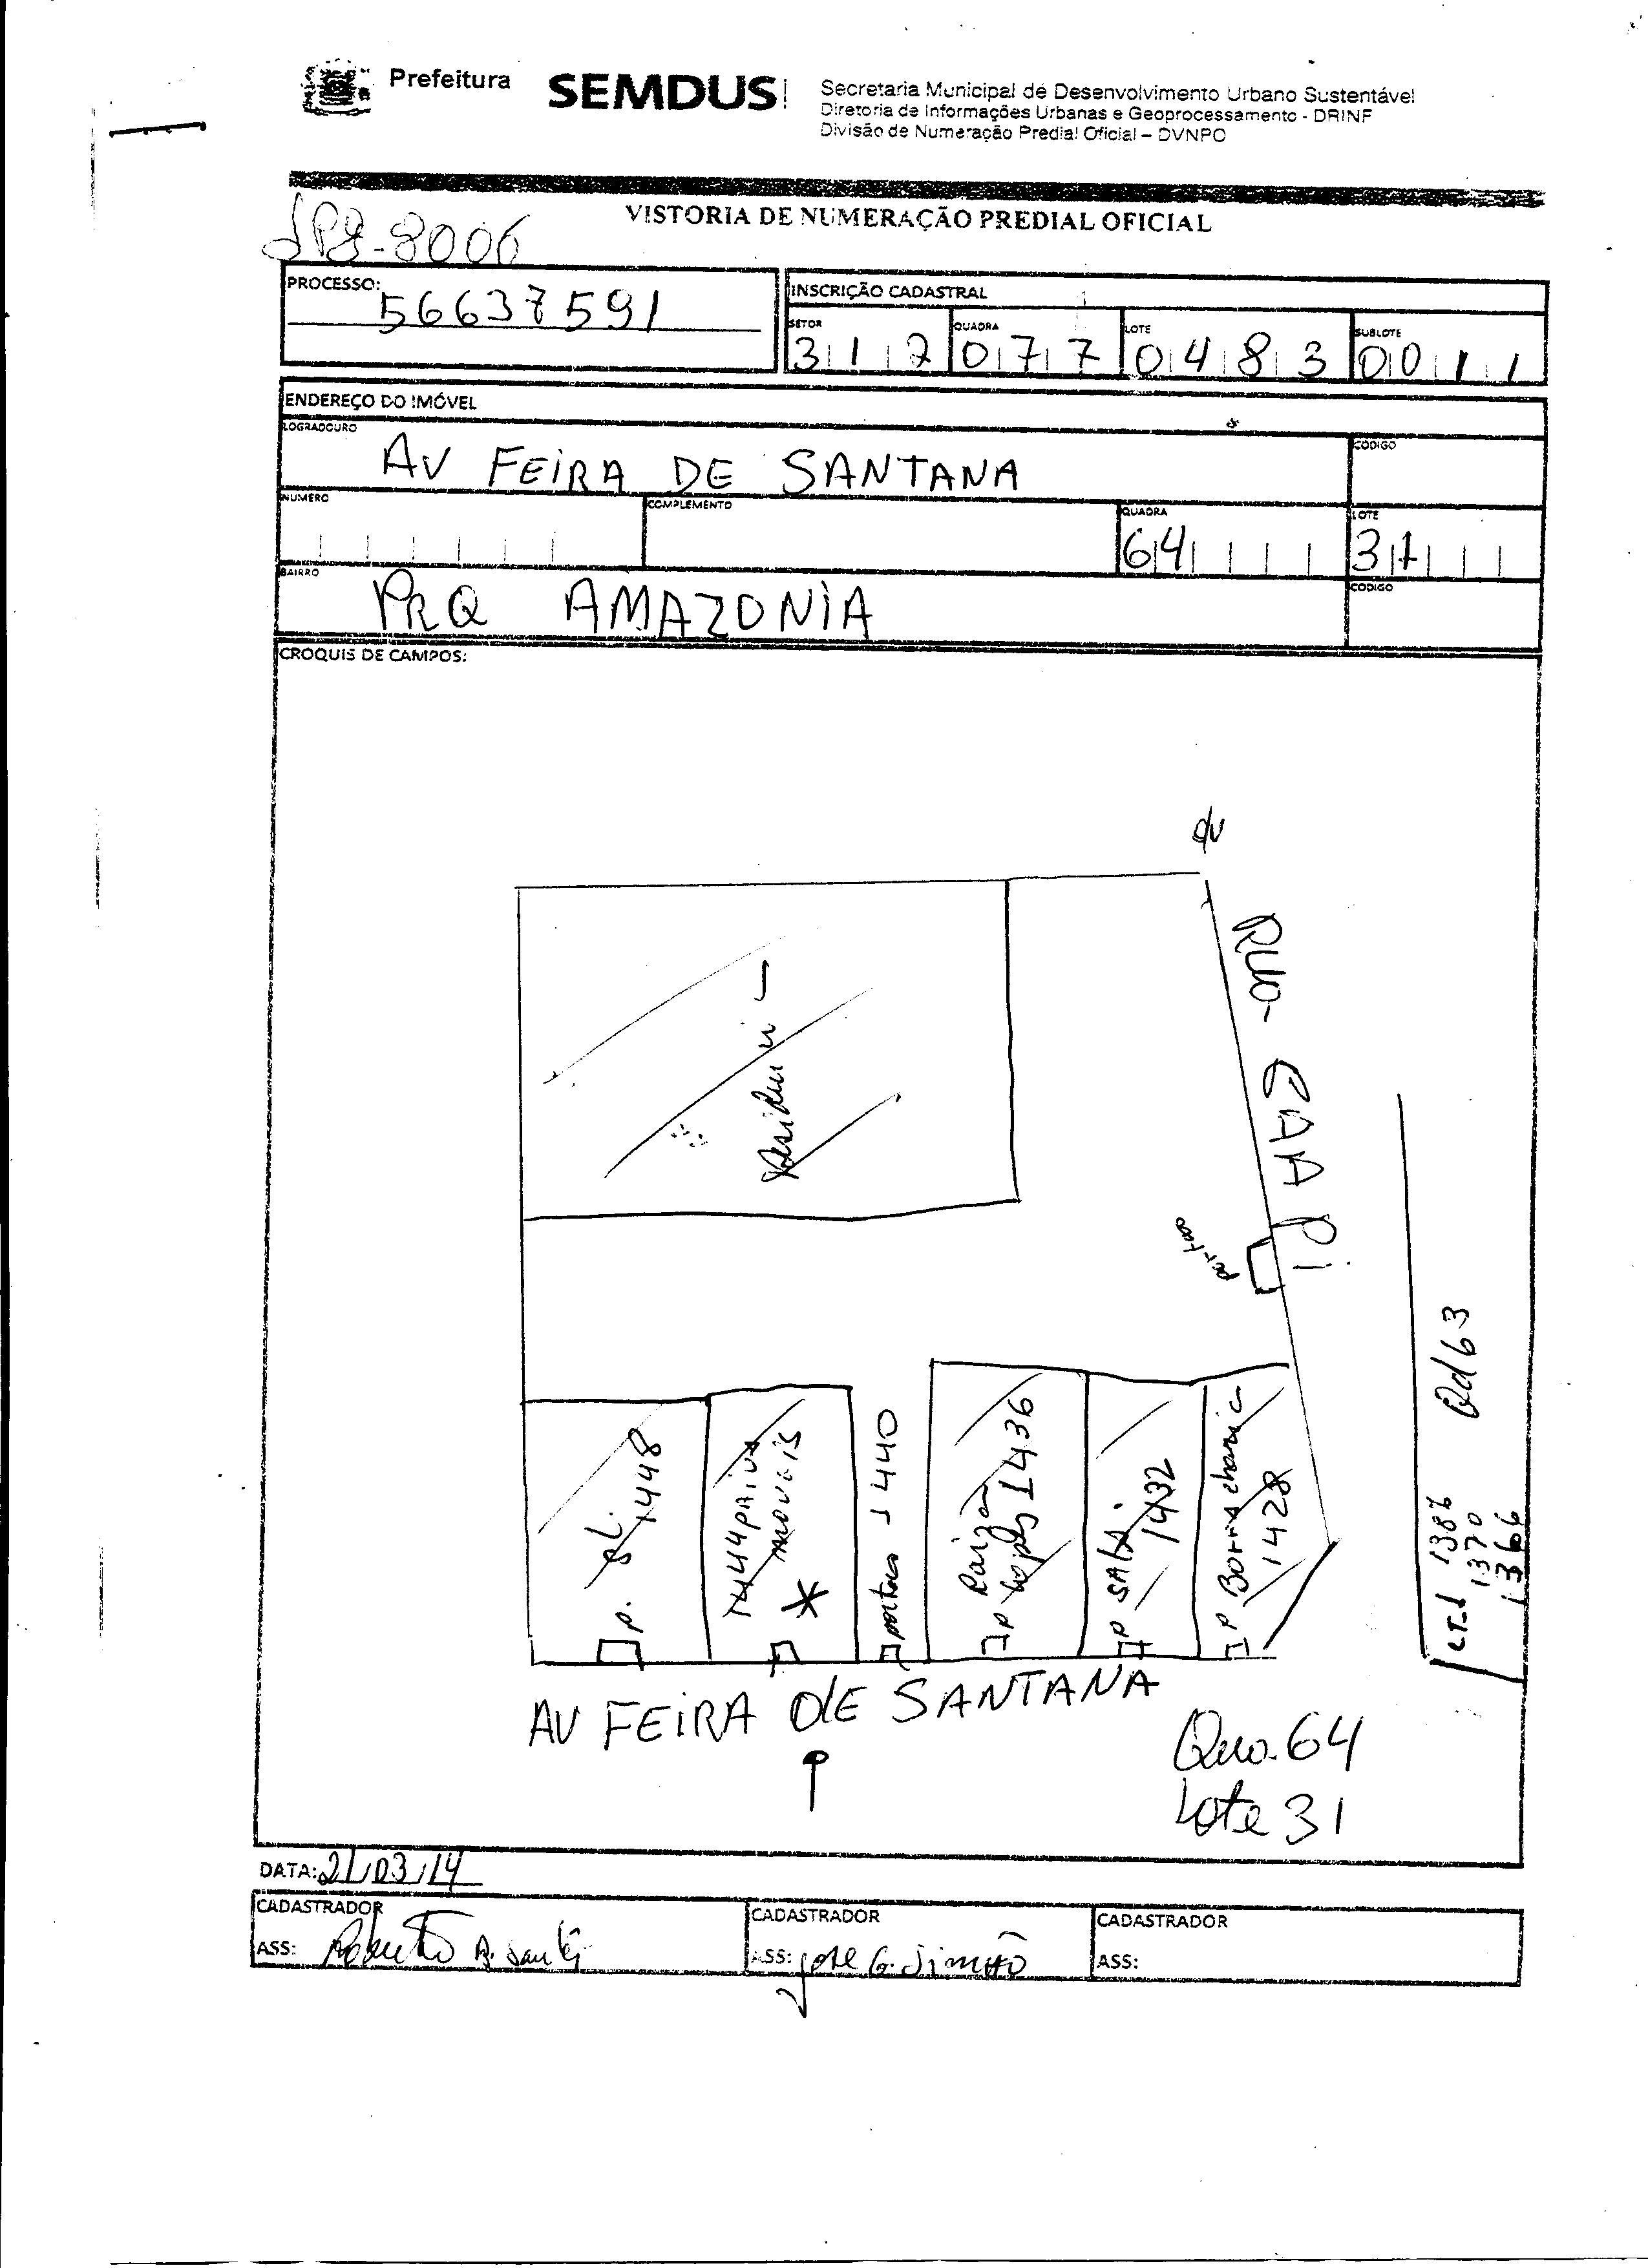 Prefeitura
SEMDUS
Secretaria Municipal de Desenvolvimento Urbano Sustentável
Diretoria de Informações Urbanas e Geoprocessamento - DRINF
Divisão de Numeração Predial Oficial – DVNPO
VISTORIA DE NUMERAÇÃO PREDIAL OFICIAL
8006
PROCESSO: 56637591
INSCRIÇÃO CADASTRAL
SETOR 312 QUADRA 077 LOTE 0483 SUBLOTE 0011
ENDEREÇO DO IMÓVEL
LOGRADOURO AV FEIRA DE SANTANA CÓDIGO
NUMERO COMPLEMENTO QUADRA 64 LOTE 31
BAIRRO PRQ AMAZONIA CODIGO
CROQUIS DE CAMPOS:
RUA CAAPI
portao
Qd 63
1386
1370
1366
P. SL. 1448
1444 PAIVA
MOVEIS
portao 1440
P Lopes 1436
P SALA 1432
P Borracharia
1428
AV FEIRA DE SANTANA
Qua. 64
Lote 31
DATA: 21/03/14
CADASTRADOR
ASS: Roberto
CADASTRADOR
ASS: José G. Simão
CADASTRADOR
ASS: